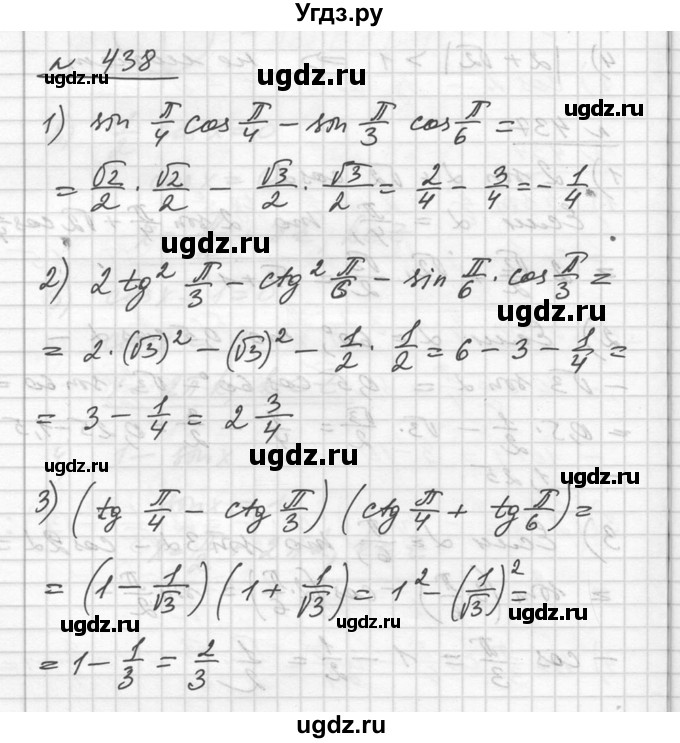 Угдз.ру
№ 438
ugdz.ru
ugdz.ru
1) sin π/4 cos π/4 − sin π/3 cos π/6 =
= √2/2 · √2/2 − √3/2 · √3/2 = 2/4 − 3/4 = −1/4
ugdz.ru
ugdz.ru
2) 2 tg² π/3 − ctg² π/6 − sin π/6 · cos π/3 =
ugdz.ru
= 2·(√3)² − (√3)² − 1/2 · 1/2 = 6 − 3 − 1/4 =
= 3 − 1/4 = 2 3/4
ugdz.ru
ugdz.ru
ugdz.ru
3) (tg π/4 − ctg π/3)(ctg π/4 + tg π/6) =
= (1 − 1/√3)(1 + 1/√3) = 1² − (1/√3)² =
ugdz.ru
ugdz.ru
ugdz.ru
= 1 − 1/3 = 2/3
ugdz.ru
ugdz.ru